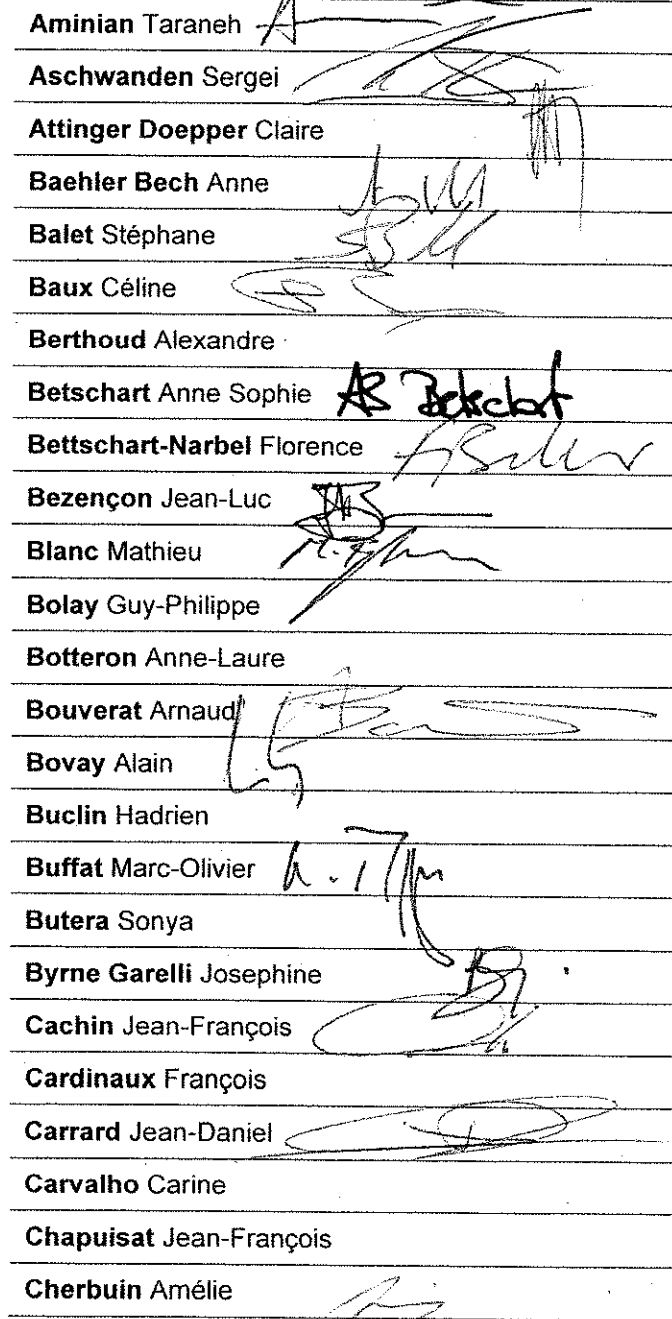 Aminian Taraneh
Aschwanden Sergei
Attinger Doepper Claire
Baehler Bech Anne
Balet Stéphane
Baux Céline
Berthoud Alexandre
Betschart Anne Sophie AS Betschart
Bettschart-Narbel Florence
Bezençon Jean-Luc
Blanc Mathieu
Bolay Guy-Philippe
Botteron Anne-Laure
Bouverat Arnaud
Bovay Alain
Buclin Hadrien
Buffat Marc-Olivier
Butera Sonya
Byrne Garelli Josephine
Cachin Jean-François
Cardinaux François
Carrard Jean-Daniel
Carvalho Carine
Chapuisat Jean-François
Cherbuin Amélie